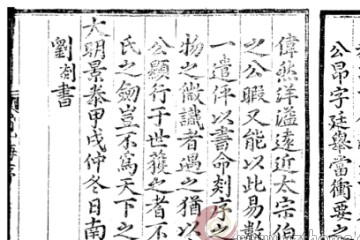 公昂字廷舉當衝要之
偉然洋溢遠近太宗伯
之公暇又能以此易數
一遣伻以書命剡序之
物之微識者遇之猶以
公顯行于世獲之者不
氏之劒豈不爲天下之
大明景泰甲戌仲冬日南
劉剡書